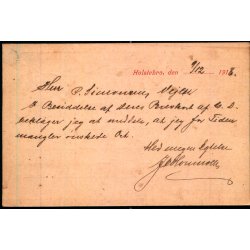 Holstebro, den 9/12 1913.
Herr P. Simonsen, Vejle
I Besiddelse af Deres Brevkort af 6. ds.
beklager jeg at meddele, at jeg for Tiden
mangler ønskede Ort.
Med megen Agtelse